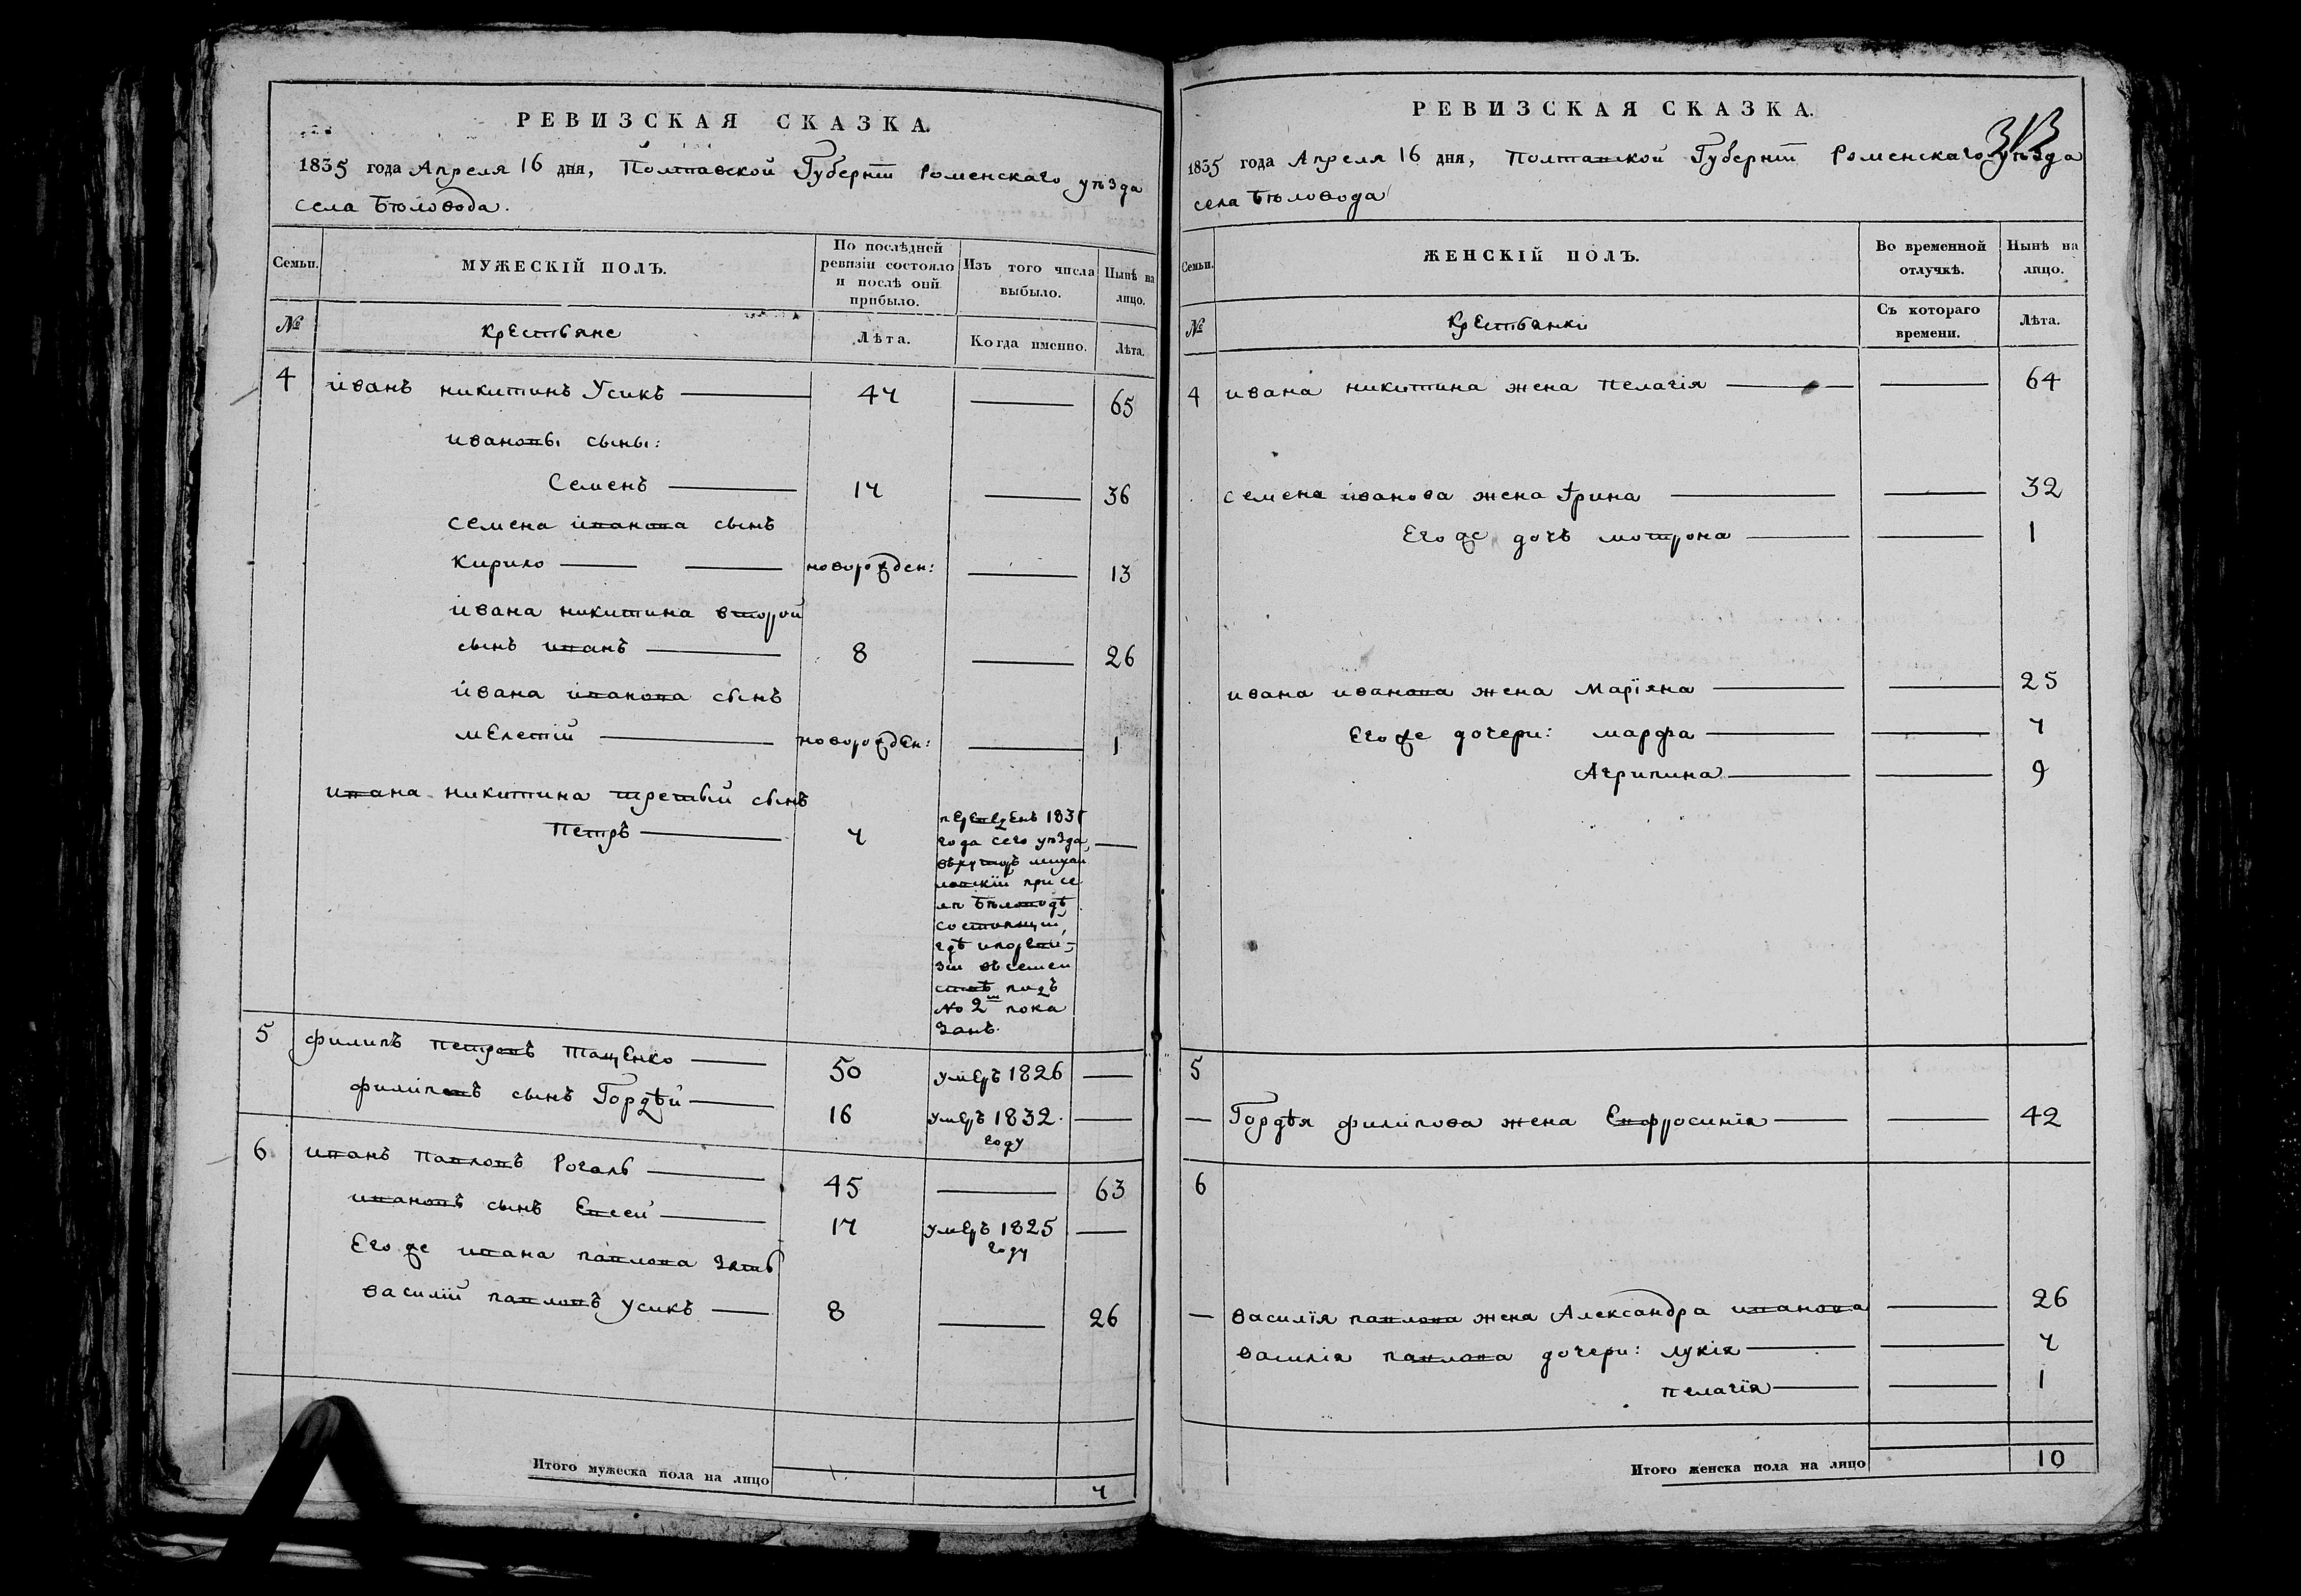 РЕВИЗСКАЯ СКАЗКА.
1835 года Апреля 16 дня, Полтавской Губерніи Роменскаго уѣзда
села Бѣловода.
Семьи. МУЖЕСКІЙ ПОЛЪ. По послѣдней ревизіи состояло и послѣ оній прибыло. Изъ того числа выбыло. Нынѣ на лицо.
№ Крестьяне Лѣта. Когда именно. Лѣта.
4 Иванъ Никитинъ Усикъ 47 65
Ивановы сыны:
Семенъ 17 36
Семена Иванова сынъ
Кирило новорожден: 13
Ивана Никитина второй
сынъ Иванъ 8 26
Ивана Иванова сынъ
Мелетій новорожден: 1
Ивана Никитина третьій сынъ
Петръ 7
переведенъ 1831
года сего уѣзда,
въхуторъ Михай
ловскій при се
лѣ Бѣловодѣ
состоящій,
гдѣипореви-
зіи въсемей
ствѣ подъ
No 2м пока
занъ.
5 Филипъ Петровъ Тащенко 50 умеръ 1826
Филиповъ сынъ Гордѣй 16 умеръ 1832.
году
6 Иванъ Павловъ Рогаль 45 63
Ивановъ сынъ Евсей 17 умеръ 1825
году
Его же Ивана Павлова зять
Василій Павловъ Усикъ 8 26
Итого мужеска пола на лицо 7
РЕВИЗСКАЯ СКАЗКА.
313
1835 года Апреля 16 дня, Полтавской Губерніи Роменскаго уѣзда
села Бѣловода
Семьи. ЖЕНСКІЙ ПОЛЪ. Во временной отлучкѣ. Нынѣ на лицо.
№ Крестьянки Съ котораго времени. Лѣта.
4 Ивана Никитина жена Пелагія 64
Семена Иванова жена Ірина 32
Его же дочь Мотрона 1
Ивана Иванова жена Маріяна 25
Его же дочери: Марфа 7
Агрипина 9
5
Гордѣя Филипова жена Евфросинія 42
6
Василія Павлова жена Александра Иванова 26
Василія Павлова дочери: Лукія 7
Пелагія 1
Итого женска пола на лицо 10